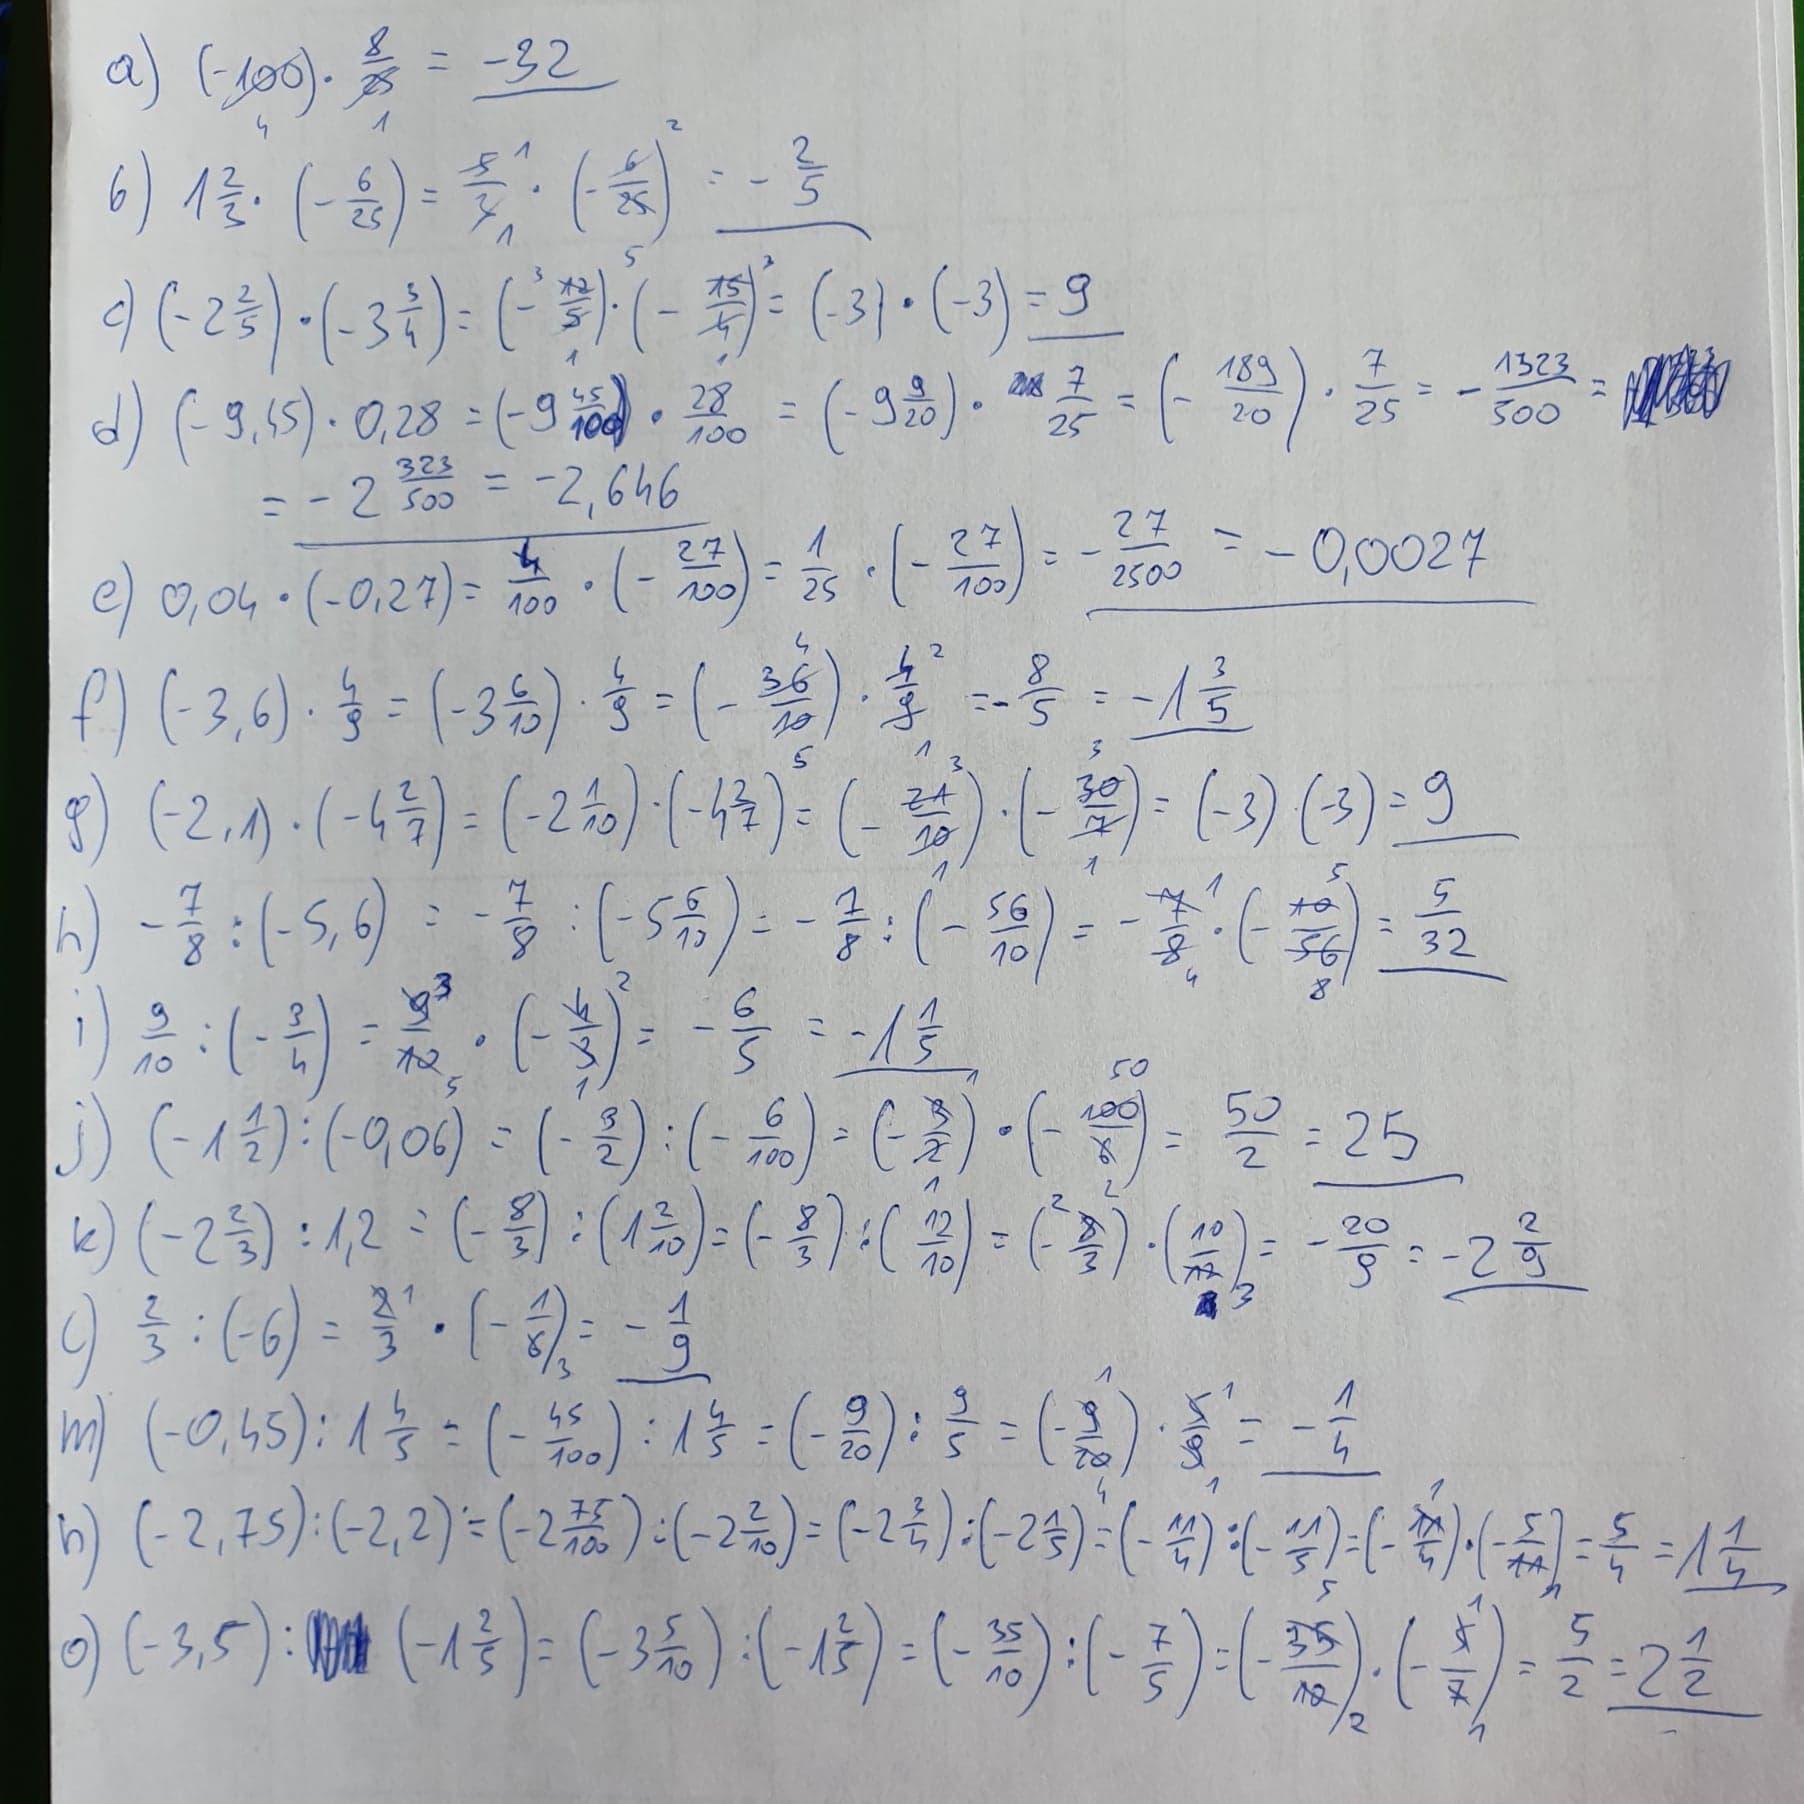 a) (-100) · 8/25 = -32
b) 1 2/3 · (- 6/25) = 5/3 · (- 6/25) = - 2/5
c) (-2 2/5) · (-3 3/4) = (- 12/5) · (- 15/4) = (-3) · (-3) = 9
d) (-9,45) · 0,28 = (-9 45/100) · 28/100 = (-9 9/20) · 7/25 = (- 189/20) · 7/25 = - 1323/500 =
= -2 323/500 = -2,646
e) 0,04 · (-0,27) = 4/100 · (- 27/100) = 1/25 · (- 27/100) = - 27/2500 = -0,0027
f) (-3,6) · 4/9 = (-3 6/10) · 4/9 = (- 36/10) · 4/9 = - 8/5 = -1 3/5
g) (-2,1) · (-4 2/7) = (-2 1/10) · (-4 2/7) = (- 21/10) · (- 30/7) = (-3) · (-3) = 9
h) - 7/8 : (-5,6) = - 7/8 : (-5 6/10) = - 7/8 : (- 56/10) = - 7/8 · (- 10/56) = 5/32
i) 9/10 : (- 3/4) = 9/10 · (- 4/3) = - 6/5 = -1 1/5
j) (-1 1/2) : (-0,06) = (- 3/2) : (- 6/100) = (- 3/2) · (- 100/6) = 50/2 = 25
k) (-2 2/3) : 1,2 = (- 8/3) : (1 2/10) = (- 8/3) : (12/10) = (- 8/3) · (10/12) = - 20/9 = -2 2/9
l) 2/3 : (-6) = 2/3 · (- 1/6) = - 1/9
m) (-0,45) : 1 4/5 = (- 45/100) : 1 4/5 = (- 9/20) : 9/5 = (- 9/20) · 5/9 = - 1/4
n) (-2,75) : (-2,2) = (-2 75/100) : (-2 2/10) = (-2 3/4) : (-2 1/5) = (- 11/4) : (- 11/5) = (- 11/4) · (- 5/11) = 5/4 = 1 1/4
o) (-3,5) : (-1 2/5) = (-3 5/10) : (-1 2/5) = (- 35/10) : (- 7/5) = (- 35/10) · (- 5/7) = 5/2 = 2 1/2